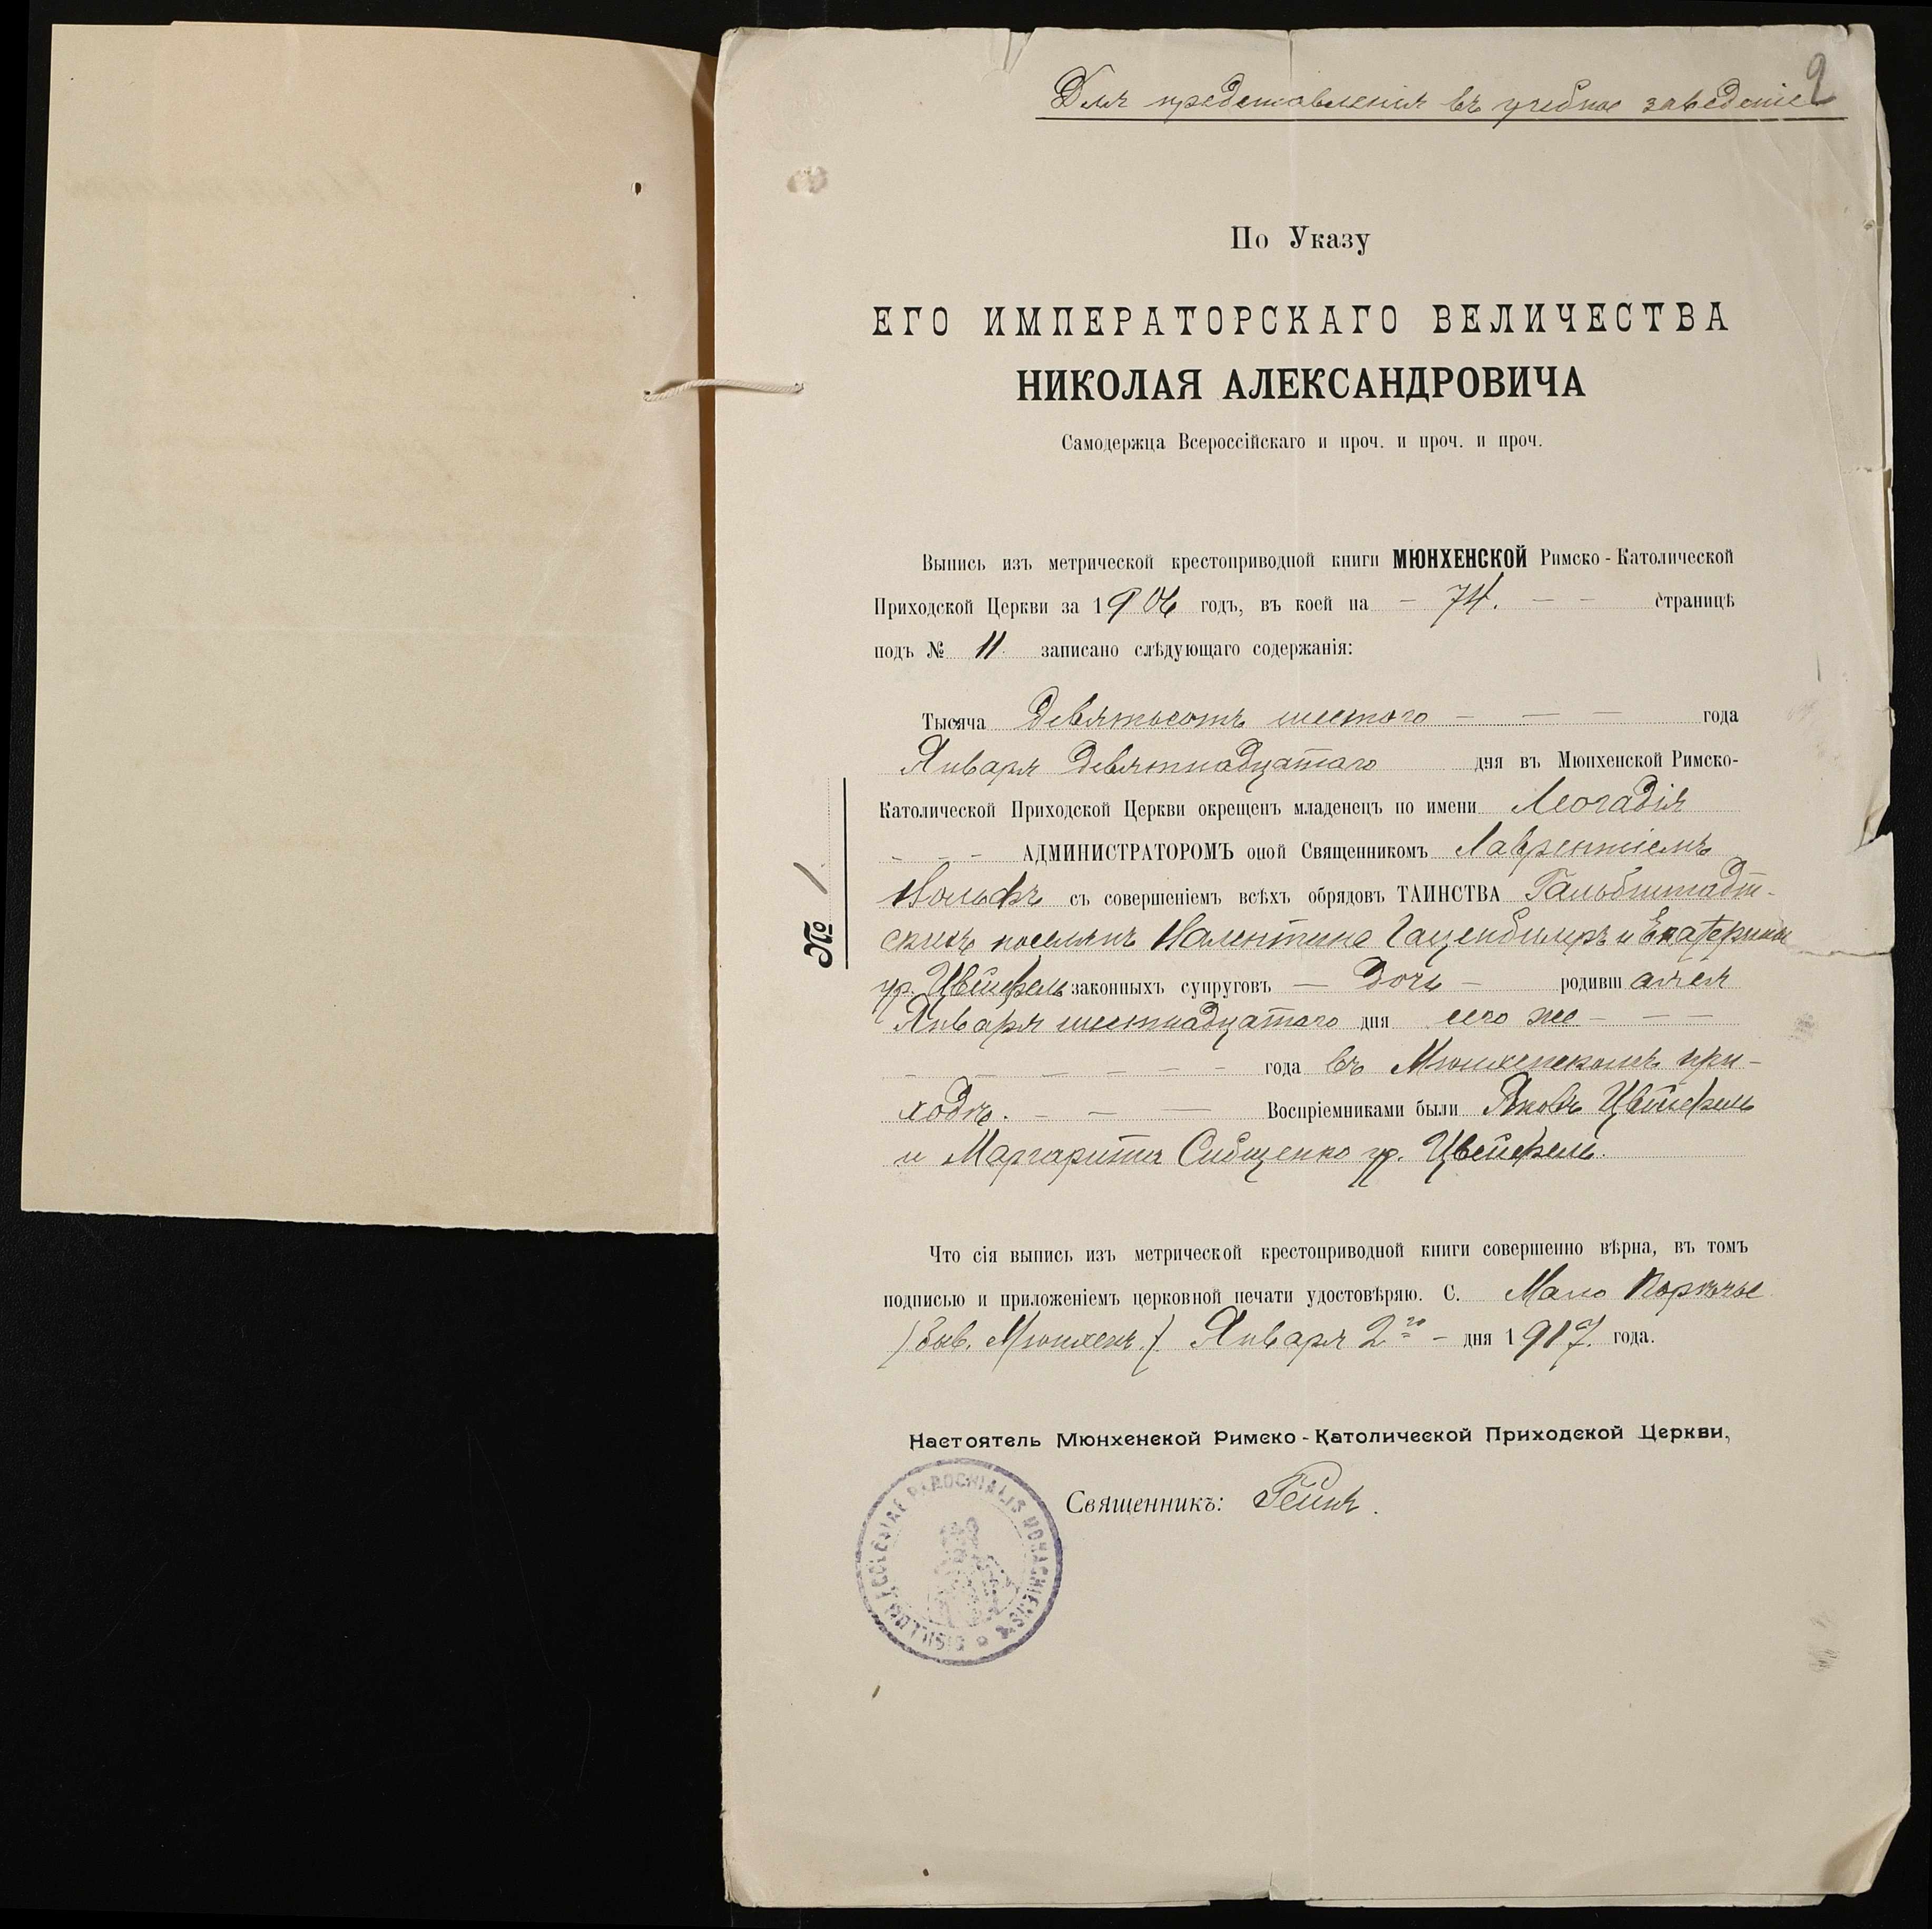 2
Для представленія въ учебное заведеніе
По Указу
ЕГО ИМПЕРАТОРСКАГО ВЕЛИЧЕСТВА
НИКОЛАЯ АЛЕКСАНДРОВИЧА
Самодержца Всероссійскаго и проч. и проч. и проч.
Выпись изъ метрической крестоприводной книги МЮНХЕНСКОЙ Римско-Католической
Приходской Церкви за 1906 годъ, въ коей на – 74. – – страницѣ
подъ № 11. записано слѣдующаго содержанія:
Тысяча девятьсотъ шестого – – – года
Января девятнадцатаго дня въ Мюнхенской Римско-
Католической Приходской Церкви окрещенъ младенецъ по имени Леогадія
– – – АДМИНИСТРАТОРОМЪ оной Священникомъ Лаврентіемъ
Вольфъ съ совершеніемъ всѣхъ обрядовъ ТАИНСТВА Гальбштадт-
скихъ поселянъ Валентина Гаценбилеръ и Екатерины
ур. Цвейфель законныхъ супруговъ – дочь – родившаяся
Января шестнадцатаго дня сего же – – –
– – – – – – года въ Мюнхенскомъ при-
ходѣ. – – – Воспріемниками были Яковъ Цвейфель
и Маргарита Сибщенко ур. Цвейфель.
№ 1
Что сія выпись изъ метрической крестоприводной книги совершенно вѣрна, въ томъ
подписью и приложеніемъ церковной печати удостовѣряю. С. Мало Корѣнье
/быв. Мюнхенъ./ Января 2го – дня 1917. года.
Настоятель Мюнхенской Римско-Католической Приходской Церкви,
Священникъ: Гейнъ.
SIGILLUM ECCLESIAE PAROCHIALIS MONACHIENSIS